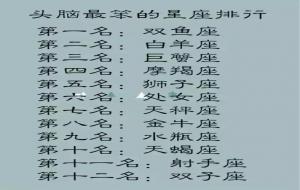 头脑最笨的星座排行
第一名：双鱼座
第二名：白羊座
第三名：巨蟹座
第四名：摩羯座
第五名：狮子座
第六名：处女座
第七名：天秤座
第八名：金牛座
第九名：水瓶座
第十名：天蝎座
第十一名：射手座
第十二名：双子座